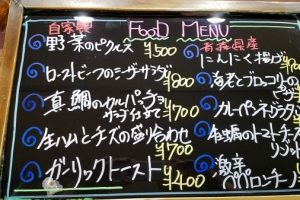 FOOD MENU
自家製
野菜のピクルス
¥500
ローストビーフのシーザーサラダ
¥800
真鯛のカルパッチョ
サラダ仕立て
¥700
生ハムとチーズの盛り合わせ
¥700
ガーリックトースト
¥400
青森県産
にんにく揚げ
海老とブロッコリーの
カレーペンネグラタ
トマトチーズ
リゾット
激辛
ペペロンチーノ